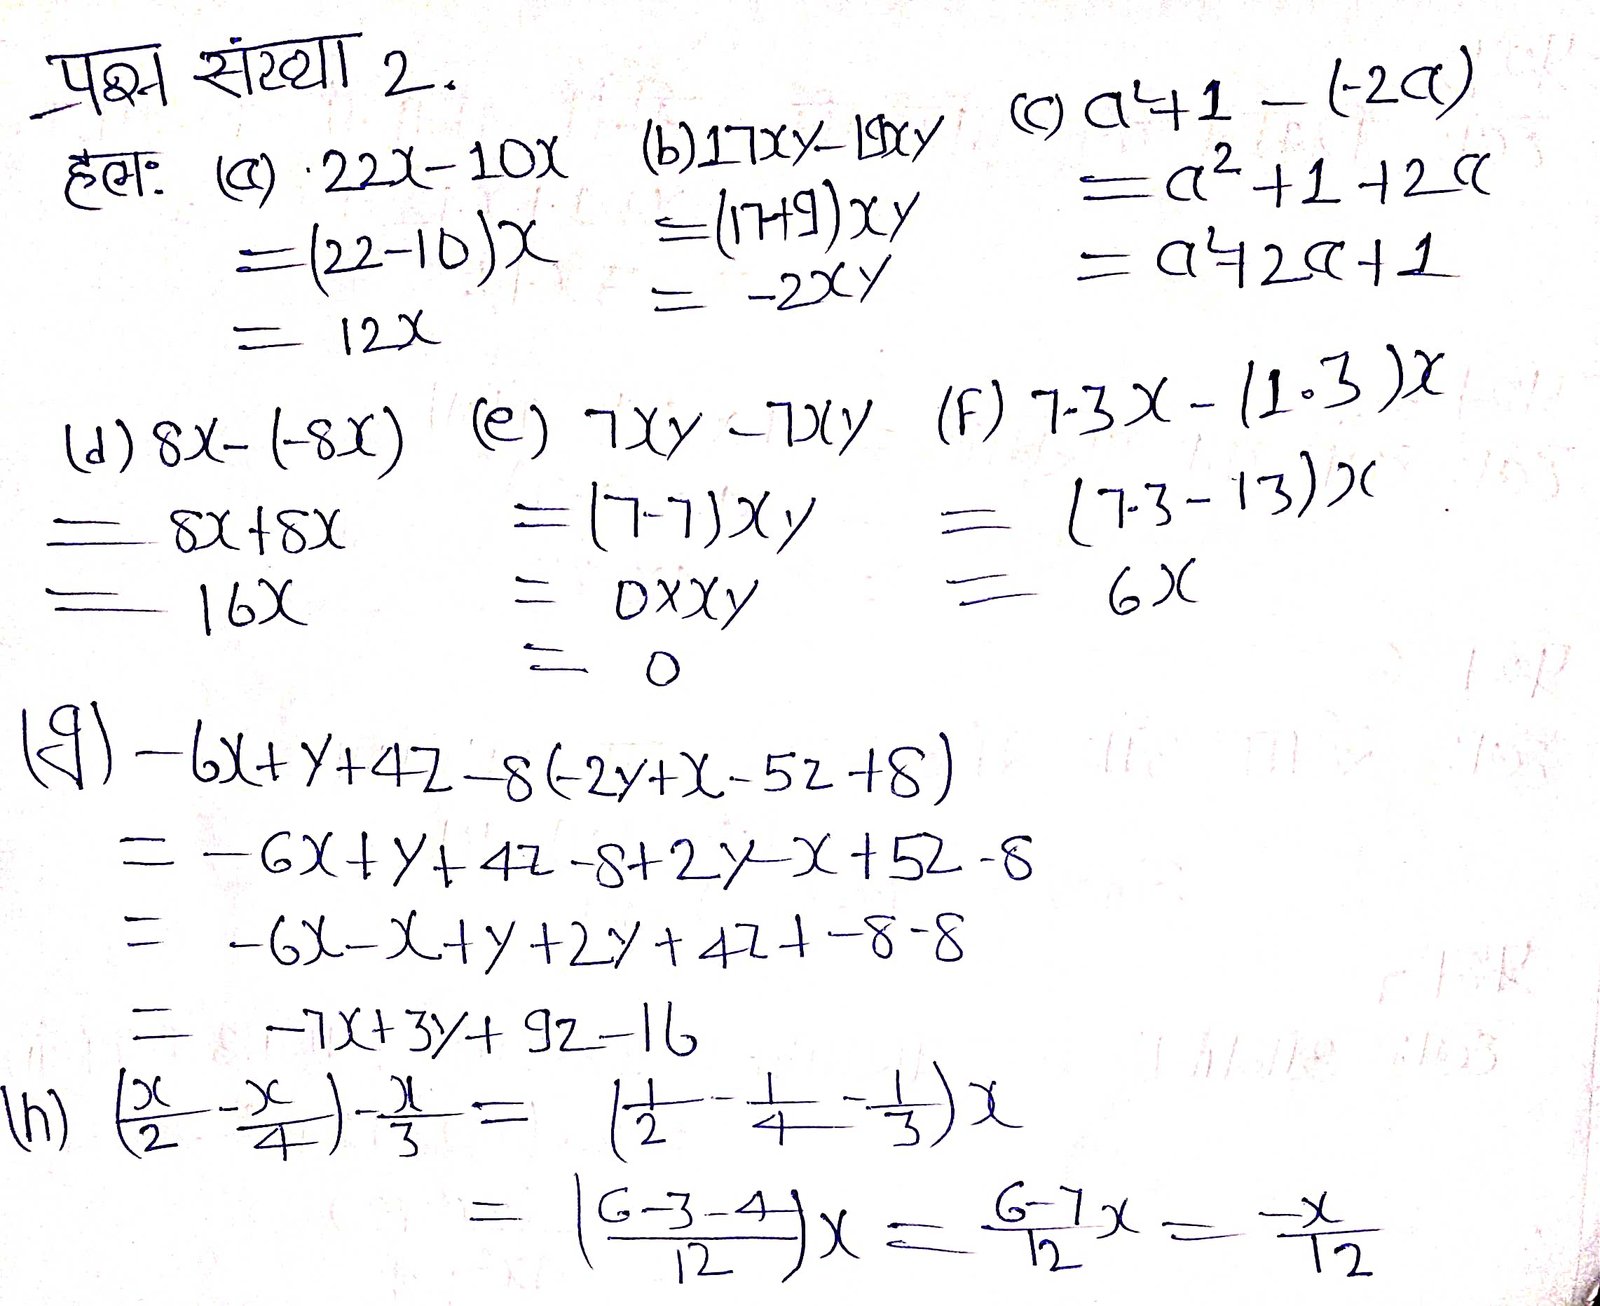 प्रश्न संख्या 2.
हलः (a) 22x-10x
=(22-10)x
= 12x
(b) 17xy-19xy
=(17-19)xy
= -2xy
(c) a²+1-(-2a)
=a²+1+2a
= a²+2a+1
(d) 8x-(-8x)
= 8x+8x
= 16x
(e) 7xy-7xy
=(7-7)xy
= 0×xy
= 0
(f) 7.3x-(1.3)x
= (7.3-13)x
= 6x
(g) -6x+y+4z-8(-2y+x-5z+8)
= -6x+y+4z-8+2y-x+5z-8
= -6x-x+y+2y+4z+-8-8
= -7x+3y+9z-16
(h) (x/2-x/4)-x/3 = (1/2-1/4-1/3)x
= (6-3-4/12)x = 6-7/12 x = -x/12